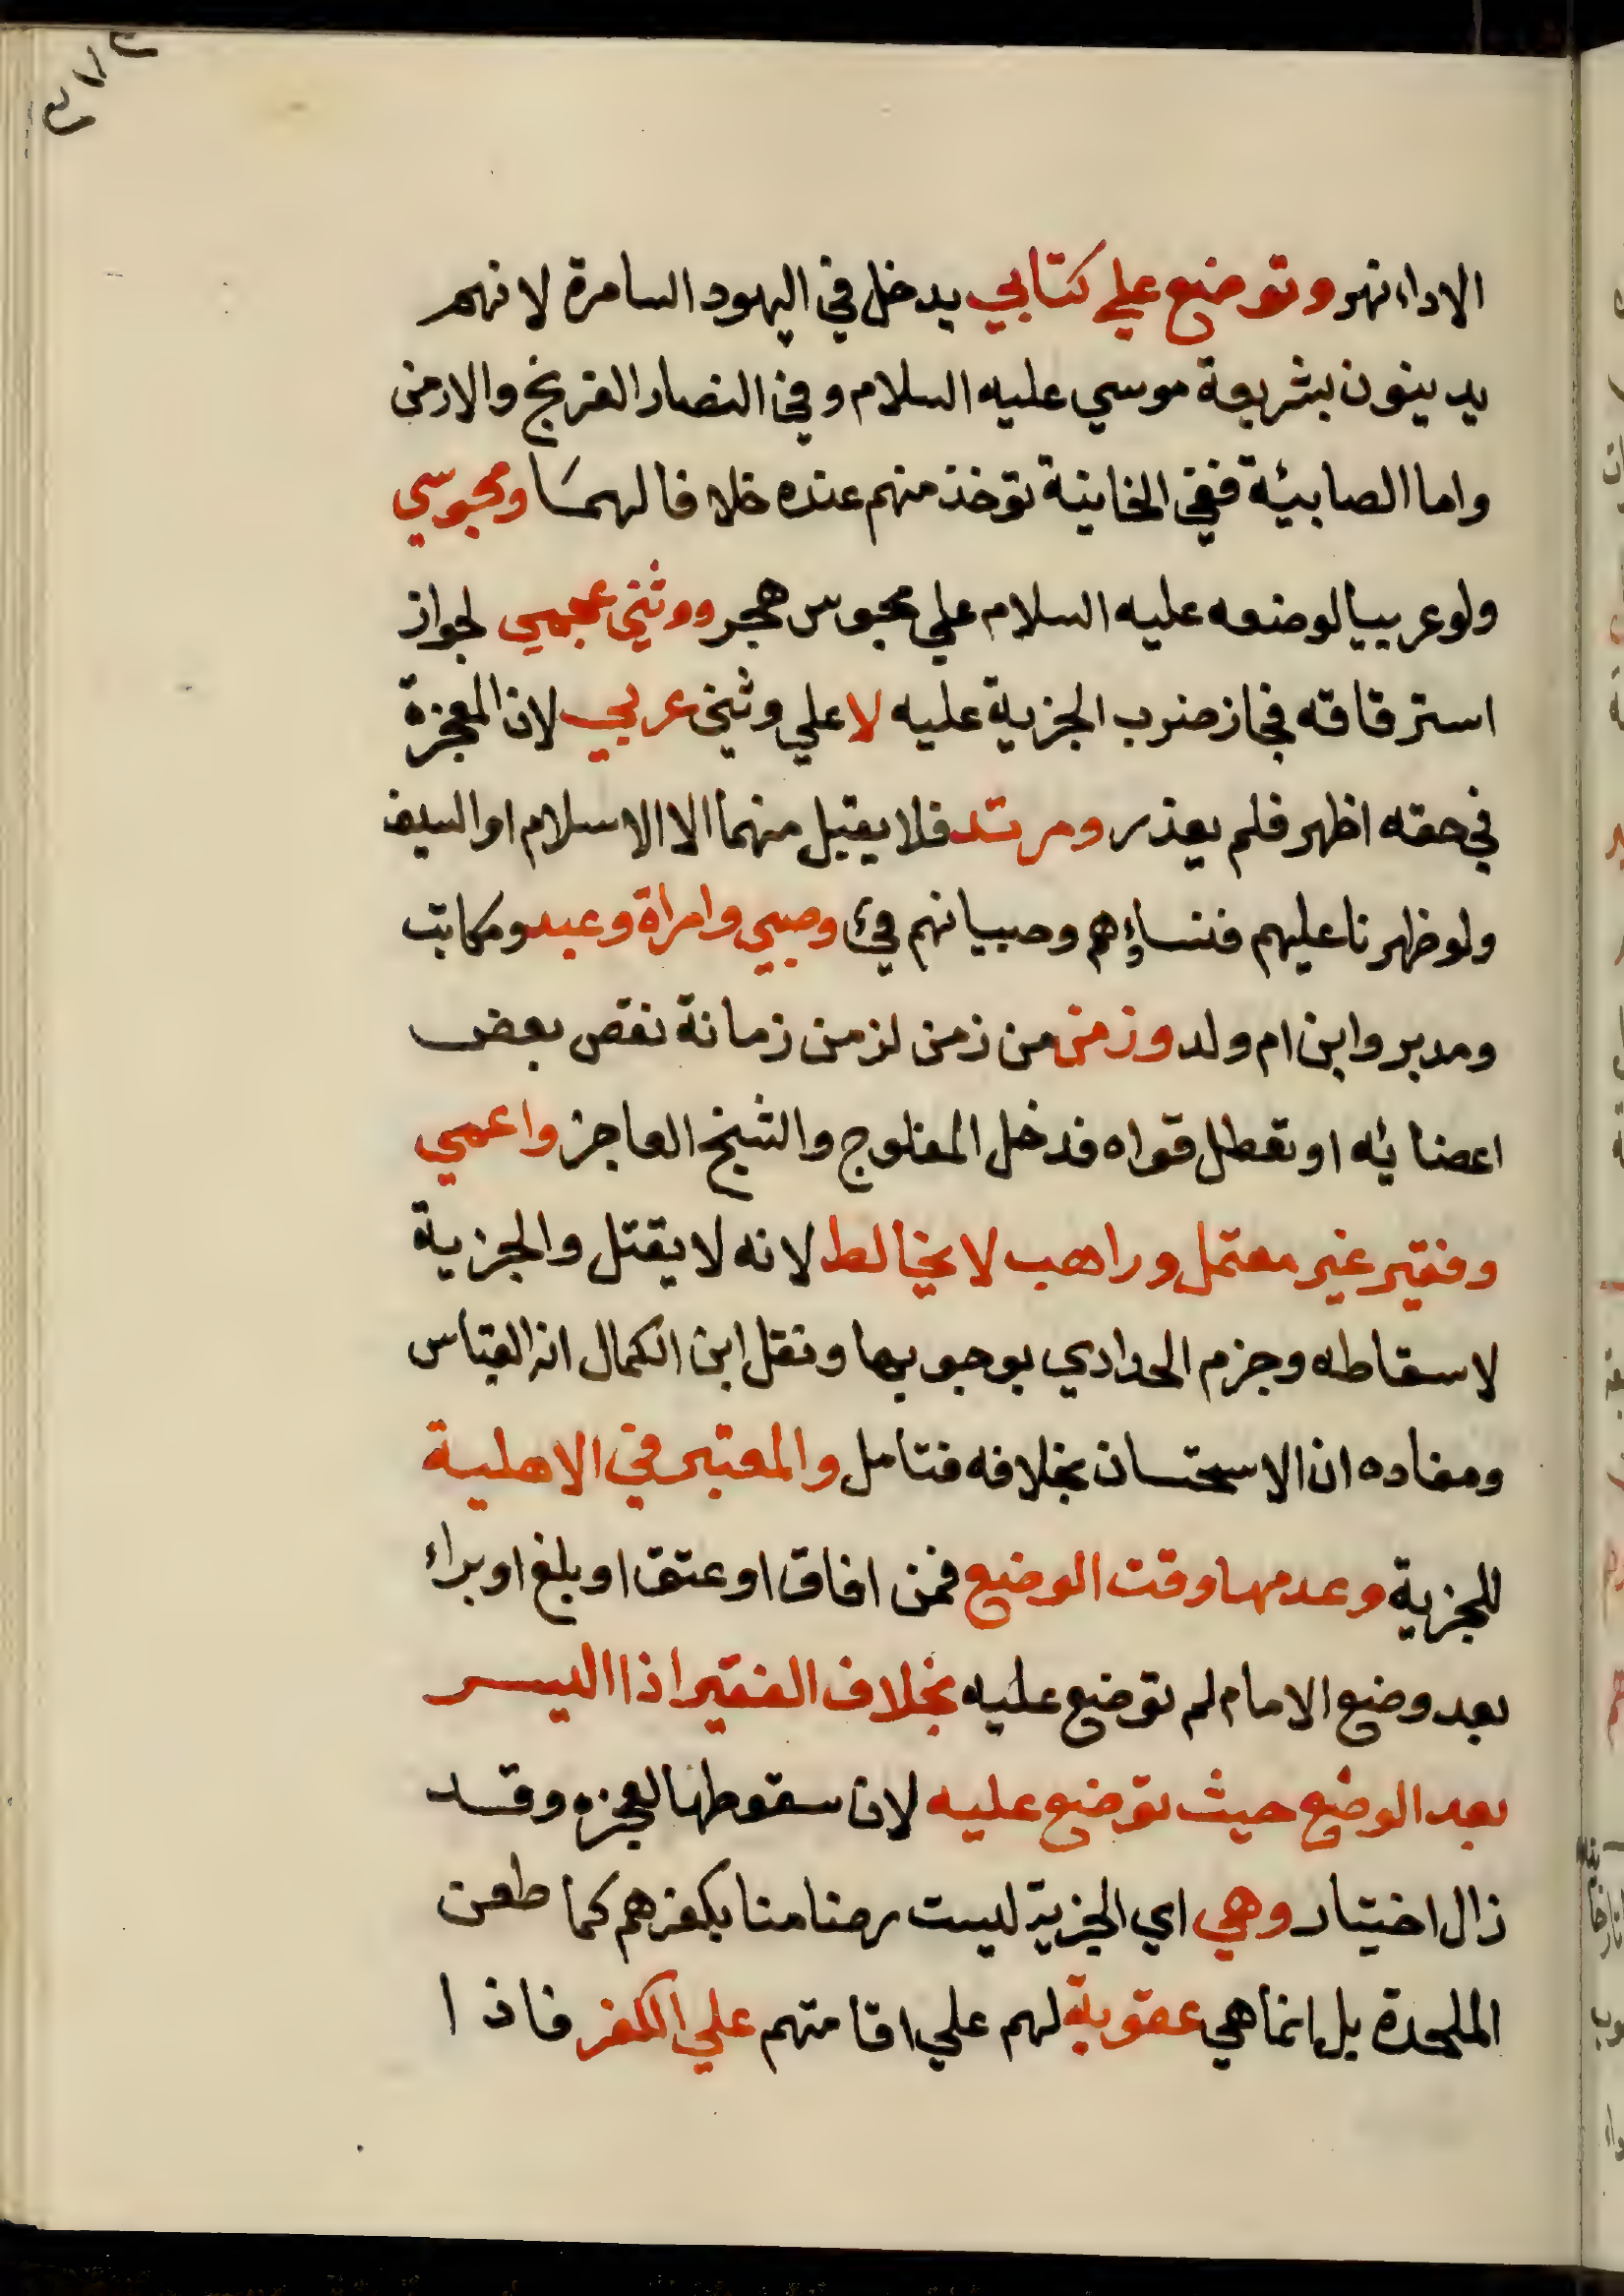 الاداء نهر وتوضع علي كتابي يدخل في اليهود السامرة لانهم
يدينون بشريعة موسي عليه السلام وفي النصار الفرنج والارمن
واما الصابيئة ففي الخانية توخذ منهم عنده خلافا لهما ومجوسي
ولو عربيا لوضعه عليه السلام علي مجوس هجر ووثني عجمي لجواز
استرقاقه فجاز ضرب الجزية عليه لا علي وثني عربي لان المعجزة
في حقه اظهر فلم يعذر ومرتد فلا يقبل منهما الا الاسلام او السيف
ولو ظهرنا عليهم فنساؤهم وصبيانهم فئ وصبي وامراة وعبد ومكاتب
ومدبر وابن ام ولد وزمن من زمن لزمن زمانة نقص بعض
اعضائه او تعطل قواه فدخل المفلوج والشيخ العاجز واعمي
وفقير غير معتمل وراهب لا يخالط لانه لا يقتل والجزية
لاسقاطه وجزم الحدادي بوجوبها ونقل ابن الكمال انه القياس
ومفاده ان الاستحسان بخلافه فتامل والمعتبر في الاهلية
للجزية وعدمها وقت الوضع فمن افاق او عتق او بلغ او براء
بعد وضع الامام لم توضع عليه بخلاف الفقير اذا اليسر
بعد الوضع حيث توضع عليه لان سقوطها لعجزه وقد
زال اختيار وهي اي الجزية ليست رضا منا بكفرهم كما طعن
الملحدة بل انما هي عقوبة لهم علي اقامتهم علي الكفر فاذا